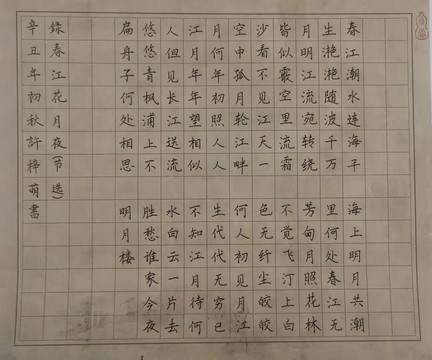 春江潮水連海平海上明月共潮
生滟滟随波千万里何处春江无
月明江流宛转绕芳甸月照花林
皆似霰空里流霜不觉飞汀上白
沙看不见江天一色无纤尘皎皎
空中孤月轮江畔何人初见月江
月何年初照人人生代代无穷已
江月年年望相似不知江月待何
人但见长江送流水白云一片去
悠悠青枫浦上不胜愁谁家今夜
扁舟子何处相思明月楼
錄春江花月夜(节选)
辛丑年初秋許梓萌書